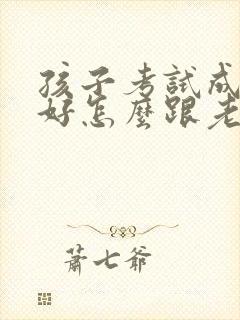 孩子考試成
好怎麼跟老
蕭七爺